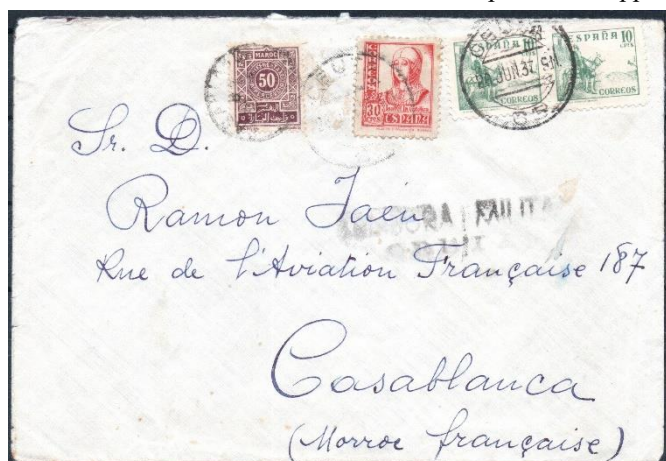 MAROC
50
30
CTS
ESPAÑA
ESPAÑA 10
CORREOS
ESPAÑA 10
CTS
CORREOS
CEUTA
JUN.37
Sr. D.
Ramon Jaén
CENSURA MILITAR
Rue de l'Aviation Française 187
Casablanca
(Morroc française)